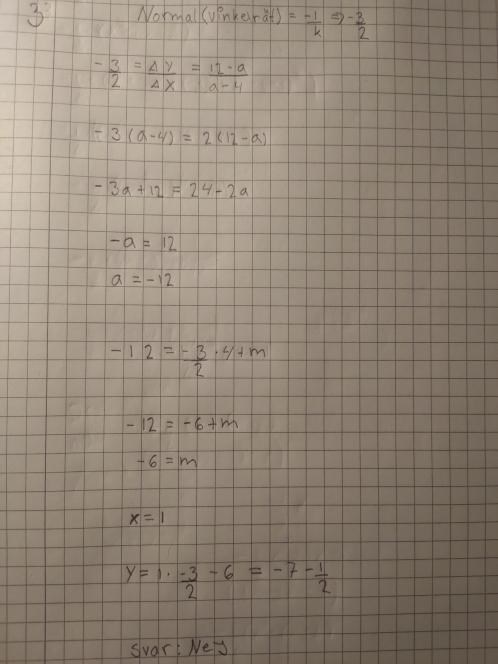 3:
Normal(vinkelrät) = -1/k ⇒ -3/2
-3/2 = ΔY/ΔX = 12-a/a-4
-3(a-4) = 2(12-a)
-3a+12 = 24-2a
-a = 12
a = -12
-12 = -3/2 · 4+m
-12 = -6+m
-6 = m
x = 1
Y = 1 · -3/2 - 6 = -7 - 1/2
Svar: Nej